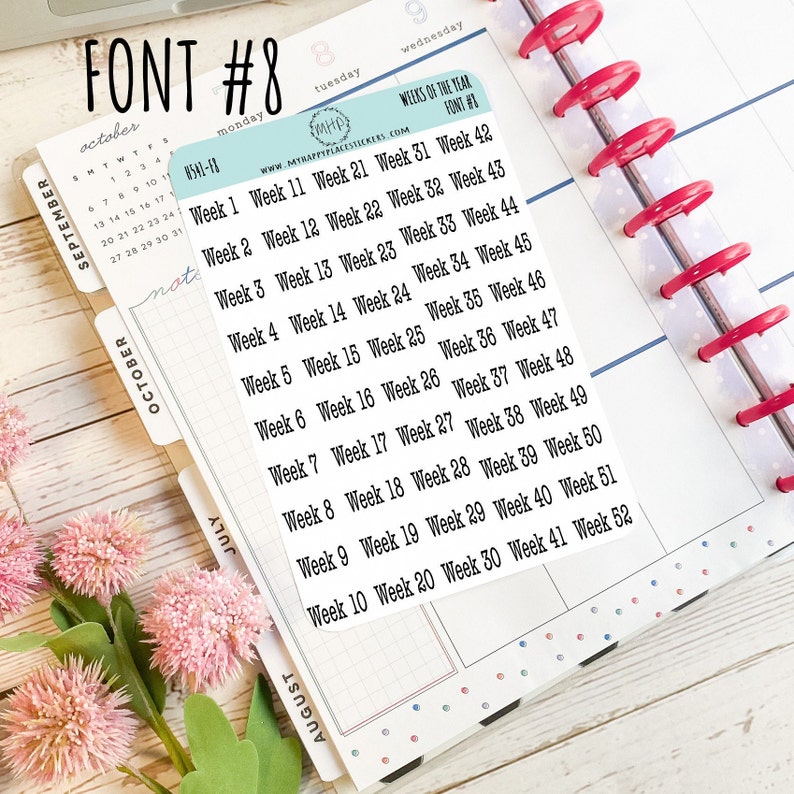 FONT #8
october
S M T W T F S
1 2 3 4
6 7 8 9 10 11
13 14 15 16 17 18
20 21 22 23 24
27 28 29 30 31
notes
monday
8
tuesday
9
wednesday
SEPTEMBER
OCTOBER
JULY
AUGUST
H541-F8
MHP
WWW.MYHAPPYPLACESTICKERS.COM
WEEKS OF THE YEAR
FONT #8
Week 1 Week 11 Week 21 Week 31 Week 42
Week 2 Week 12 Week 22 Week 32 Week 43
Week 3 Week 13 Week 23 Week 33 Week 44
Week 4 Week 14 Week 24 Week 34 Week 45
Week 5 Week 15 Week 25 Week 35 Week 46
Week 6 Week 16 Week 26 Week 36 Week 47
Week 7 Week 17 Week 27 Week 37 Week 48
Week 8 Week 18 Week 28 Week 38 Week 49
Week 9 Week 19 Week 29 Week 39 Week 50
Week 10 Week 20 Week 30 Week 40 Week 51
Week 41 Week 52